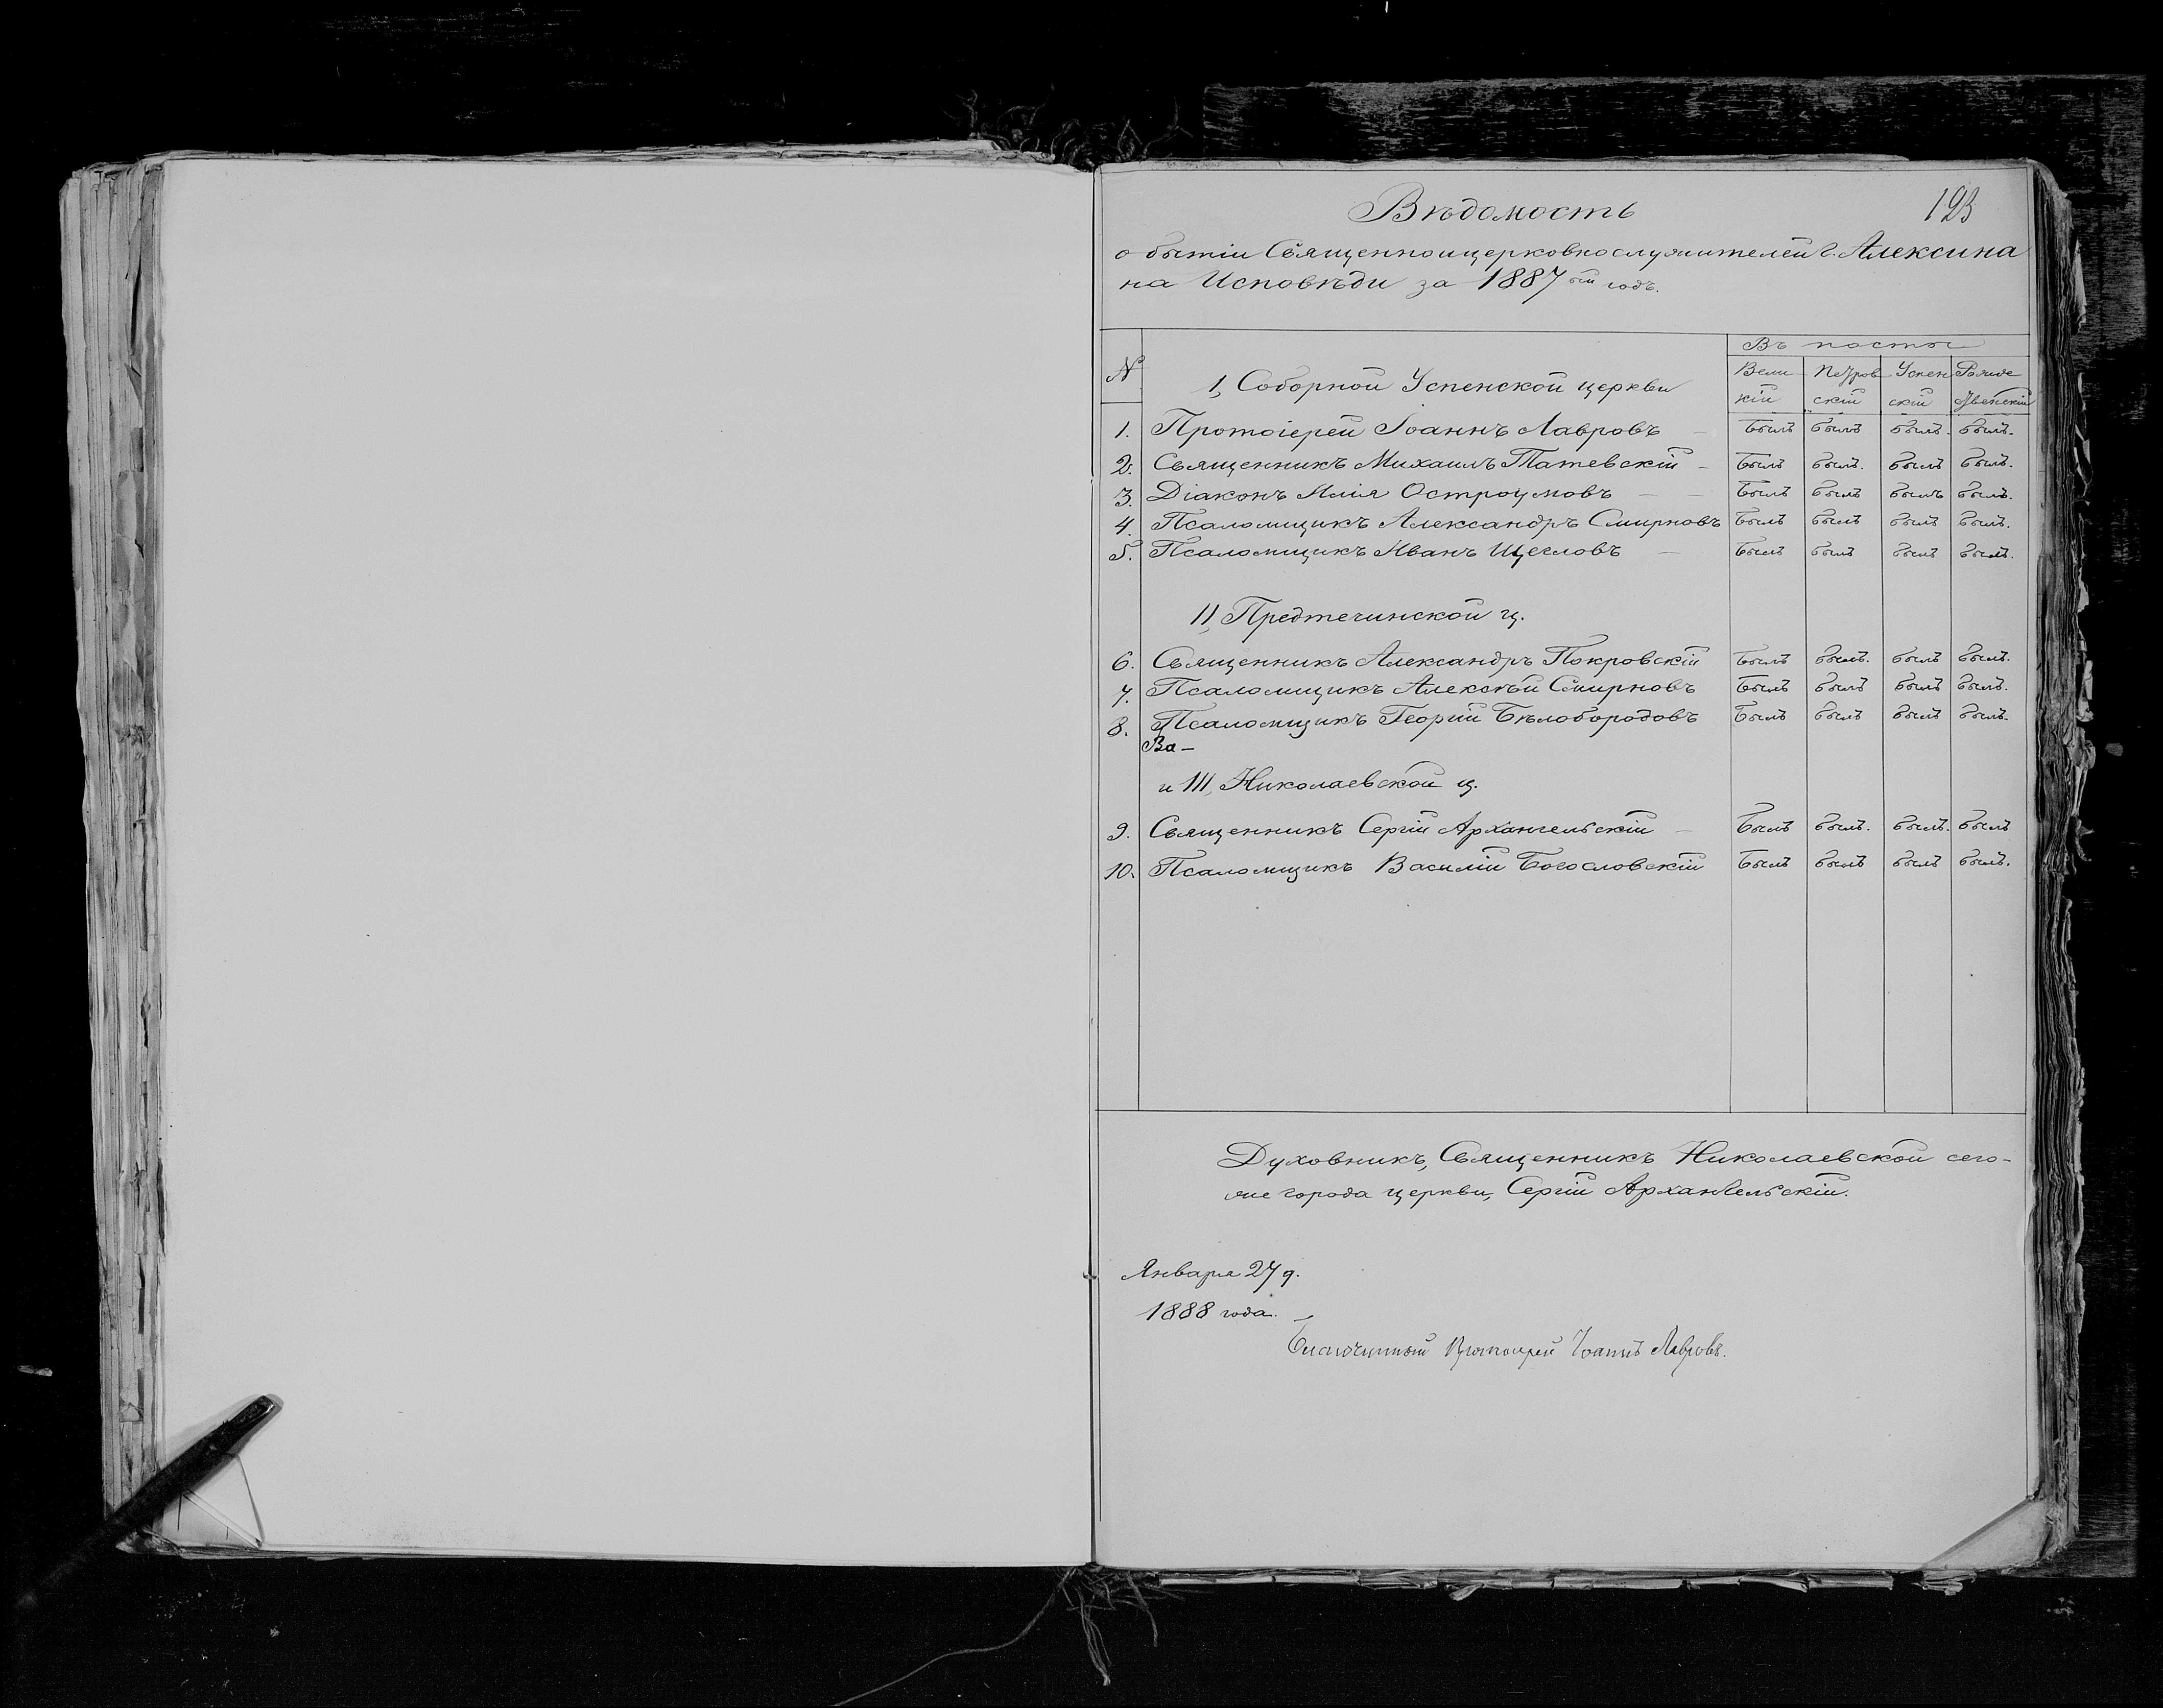 Вѣдомость 193
о бытіи Священноицерковнослужителей г. Алексина
на Исповѣди за 1887ый годъ.
N 1, Соборной Успенской церкви Въ посты
Вели Петров Успен Рожде
кій скій скій ственскій
1. Протоіерей Іоаннъ Лавровъ – былъ былъ былъ. былъ.
2. Священникъ Михаилъ Татевскій – былъ былъ. былъ былъ.
3. Діаконъ Илія Остроумовъ – – былъ былъ былъ былъ.
4. Псаломщикъ Александръ Смирновъ былъ былъ былъ былъ.
5. Псаломщикъ Иванъ Щегловъ – былъ былъ былъ былъ.
11, Предтечинской ц.
6. Священникъ Александръ Покровскій былъ былъ. былъ былъ.
7. Псаломщикъ Алексѣй Смирновъ былъ былъ былъ былъ.
8. Псаломщикъ Георгій Бѣлобородовъ былъ былъ былъ былъ.
Ва –
и 111, Николаевской ц.
9. Священникъ Сергій Архангельскій – былъ былъ. былъ. былъ
10. Псаломщикъ Василій Богословскій былъ былъ былъ былъ.
Духовникъ, Священникъ Николаевской сего-
же города церкви, Сергій Архангельскій.
Января 27 д.
1888 года. –
Благочинный Протоіерей Іоаннъ Лавровъ.